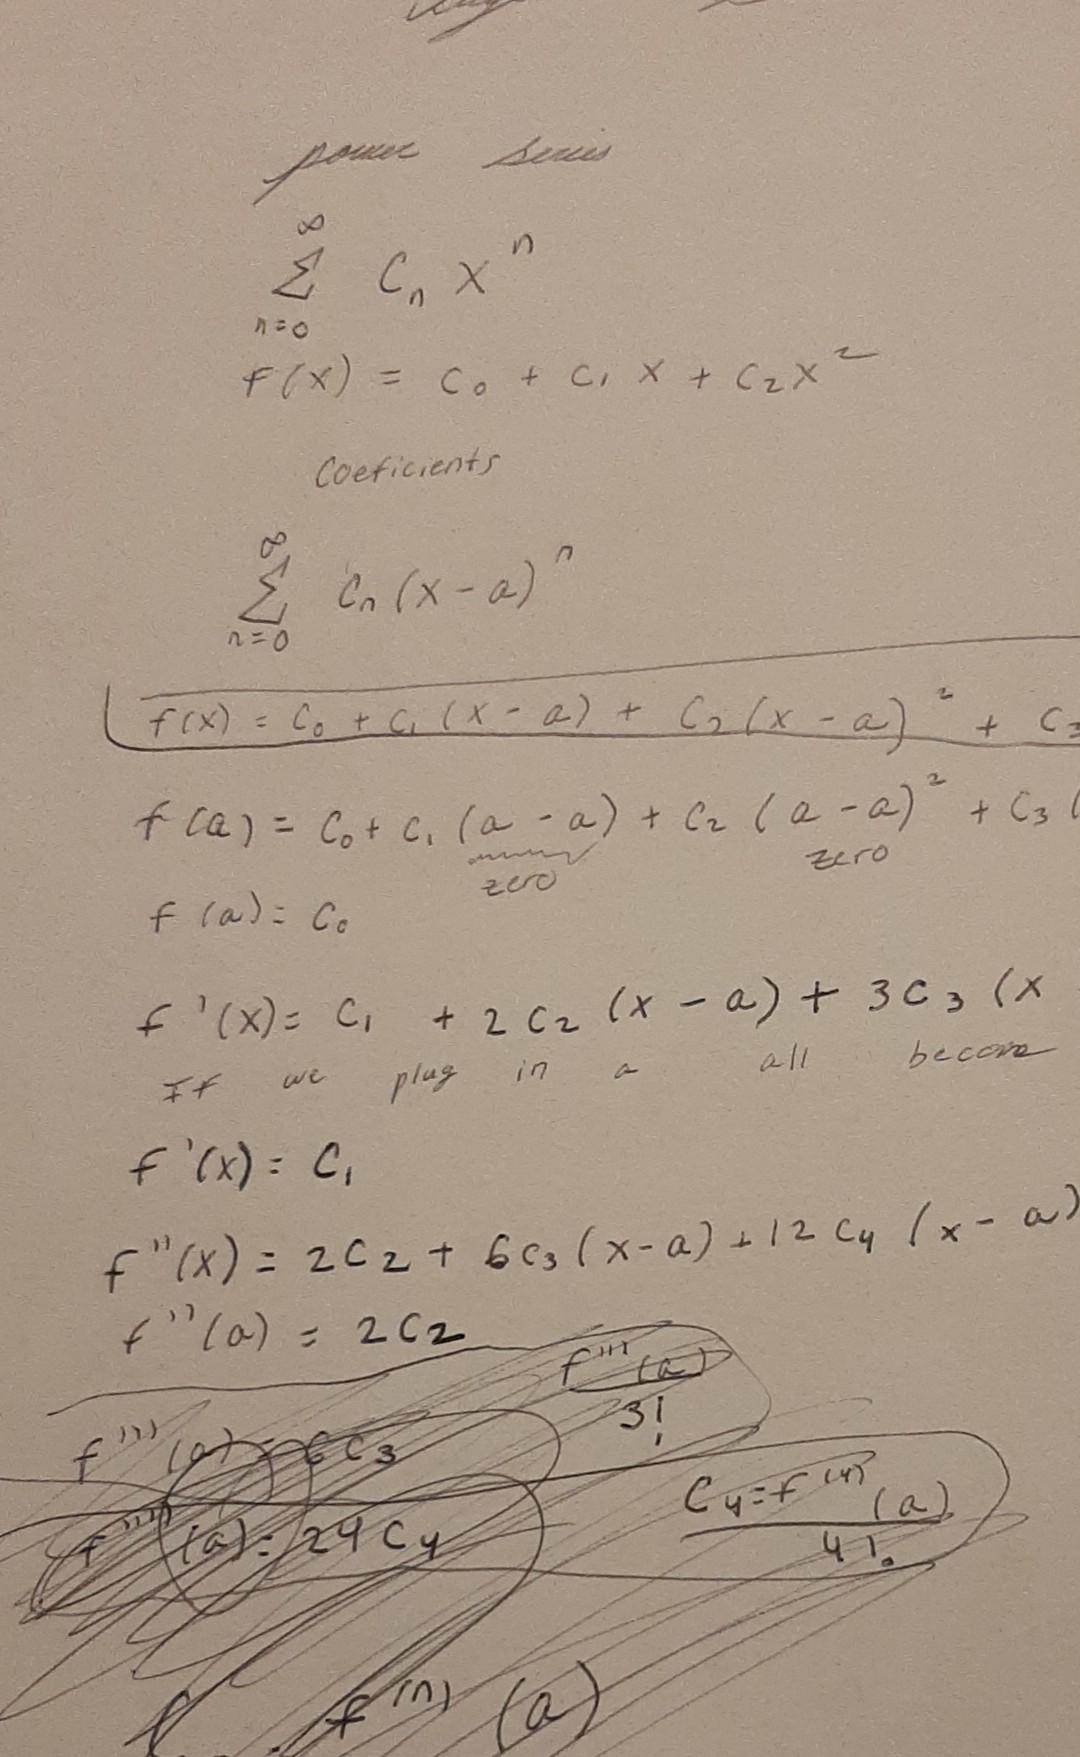 power series
∞
Σ Cₙ xⁿ
n=0
f(x) = C₀ + C₁ x + C₂x²
Coeficients
∞
Σ Cₙ (x-a)ⁿ
n=0
f(x) = C₀ + C₁ (x - a) + C₂ (x - a)² + C₃
f(a) = C₀ + C₁ (a - a) + C₂ (a - a)² + C₃ (
zero zero
f(a) = C₀
f'(x) = C₁ + 2C₂ (x - a) + 3C₃ (x
If we plug in a all become
f'(x) = C₁
f''(x) = 2C₂ + 6C₃ (x-a) + 12C₄ (x - a)
f''(a) = 2C₂
f'''(a)
3!
f'''(a) = 6C₃
C₄ = f⁽⁴⁾(a)
4!
f''''(a) = 24C₄
f⁽ⁿ⁾(a)